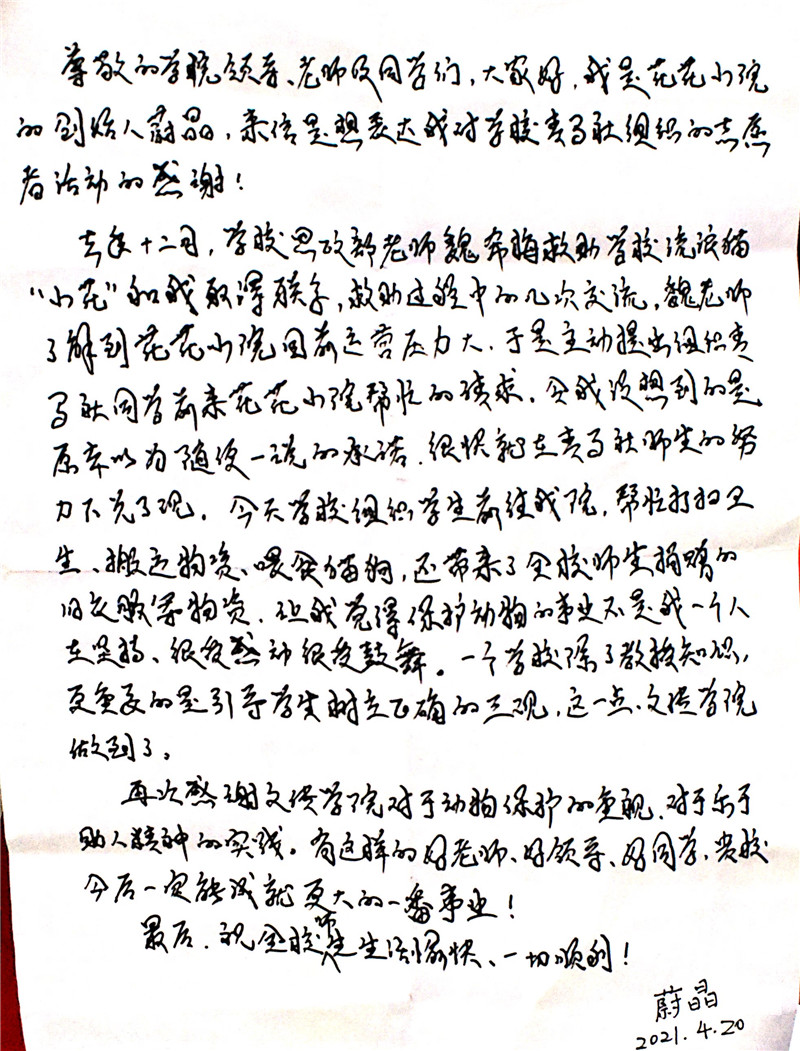 尊敬的学院领导、老师及同学们，大家好，我是花花小院
的创始人蔚晶，来信是想表达我对学校青马社组织的志愿
者活动的感谢！
去年十二月，学校思政部老师魏希梅救助学校流浪猫
“小花”和我取得联系，救助过程中的几次交流，魏老师
了解到花花小院目前运营压力大，于是主动提出组织青
马社同学前来花花小院帮忙的请求。令我没想到的是
原本以为随便一说的承诺，很快就在青马社师生的努
力下兑了现。今天学校组织学生前往我院，帮忙打扫卫
生、搬运物资、喂食猫狗，还带来了全校师生捐赠的
旧衣服等物资，让我觉得保护动物的事业不是我一个人
在坚持、很受感动很受鼓舞。一个学校除了教授知识，
更重要的是引导学生树立正确的三观，这一点，文供学院
做到了。
再次感谢文供学院对于动物保护的重视，对于乐于
助人精神的实践。有这样的好老师、好领导、好同学，贵校
今后一定能成就更大的一番事业！
最后，祝全校师生生活愉快、一切顺利！
蔚晶
2021.4.20